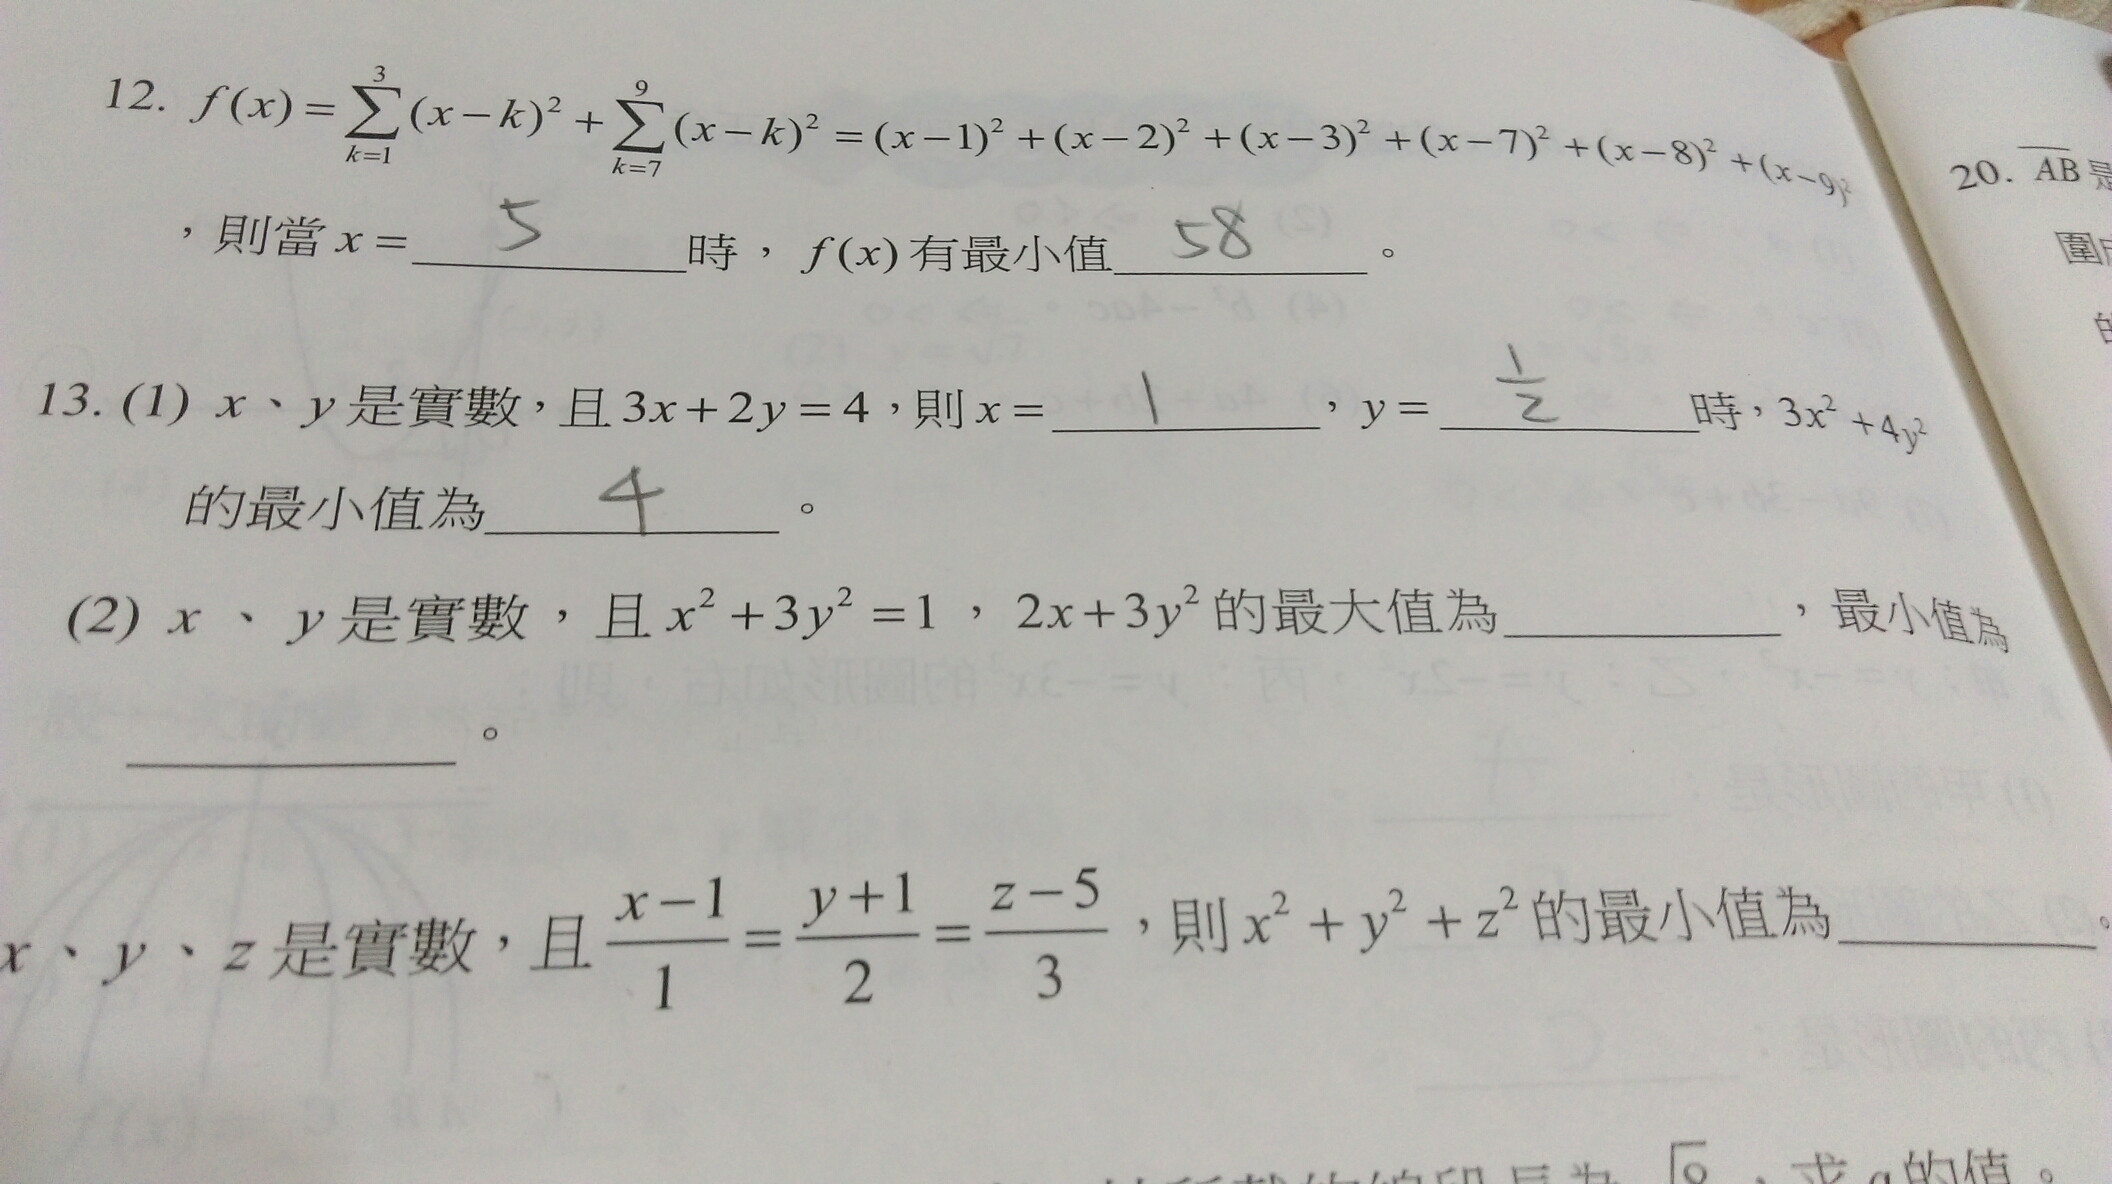 12. f(x) = \sum_{k=1}^{3}(x-k)² + \sum_{k=7}^{9}(x-k)² = (x-1)² + (x-2)² + (x-3)² + (x-7)² + (x-8)² + (x-9)²
，則當 x = 5 時， f(x) 有最小值 58 。
13. (1) x、y 是實數，且 3x+2y=4，則 x = 1 ，y = 1/2 時，3x²+4y²
的最小值為 4 。
(2) x 、 y 是實數，且 x²+3y²=1 ， 2x+3y² 的最大值為______，最小值為
______。
x、y、z 是實數，且 (x-1)/1 = (y+1)/2 = (z-5)/3 ，則 x²+y²+z² 的最小值為______。
，求 a 的值。
20. AB 是
圍
的